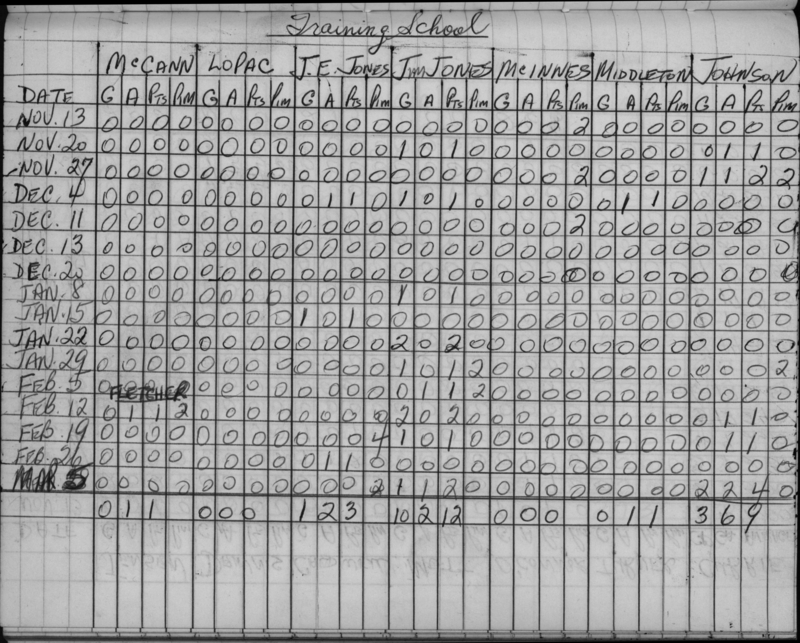 Training School
McCANN LOPAC J.E. JONES JIM JONES McINNES MIDDLETON JOHNSON
DATE G A Pts Pim G A Pts Pim G A Pts Pim G A Pts Pim G A Pts Pim G A Pts Pim G A Pts Pim
NOV. 13 0 0 0 0 0 0 0 0 0 0 0 0 0 0 0 0 0 0 0 2 0 0 0 0 0 0 0 0
NOV. 20 0 0 0 0 0 0 0 0 0 0 0 0 1 0 1 0 0 0 0 0 0 0 0 0 0 1 1 0
NOV. 27 0 0 0 0 0 0 0 0 0 0 0 0 0 0 0 0 0 0 0 2 0 0 0 0 1 1 2 2
DEC. 4 0 0 0 0 0 0 0 0 0 1 1 0 1 0 1 0 0 0 0 0 0 1 1 0 0 0 0 0
DEC. 11 0 0 0 0 0 0 0 0 0 0 0 0 0 0 0 0 0 0 0 2 0 0 0 0 0 0 0 0
DEC. 13 0 0 0 0 0 0 0 0 0 0 0 0 0 0 0 0 0 0 0 0 0 0 0 0 0 0 0 0
DEC. 20 0 0 0 0 0 0 0 0 0 0 0 0 0 0 0 0 0 0 0 0 0 0 0 0 0 0 0 0
JAN. 8 0 0 0 0 0 0 0 0 0 0 0 0 1 0 1 0 0 0 0 0 0 0 0 0 0 0 0 0
JAN. 15 0 0 0 0 0 0 0 0 1 0 1 0 0 0 0 0 0 0 0 0 0 0 0 0 0 0 0 0
JAN. 22 0 0 0 0 0 0 0 0 0 0 0 0 2 0 2 0 0 0 0 0 0 0 0 0 0 0 0 0
JAN. 29 0 0 0 0 0 0 0 0 0 0 0 0 1 0 1 2 0 0 0 0 0 0 0 0 0 0 0 2
FEB. 5 0 FLETCHER 0 0 0 0 0 0 0 0 0 1 1 2 0 0 0 0 0 0 0 0 0 0 0 0
FEB. 12 0 1 1 2 0 0 0 0 0 0 0 0 2 0 2 0 0 0 0 0 0 0 0 0 0 1 1 0
FEB. 19 0 0 0 0 0 0 0 0 0 0 0 4 1 0 1 0 0 0 0 0 0 0 0 0 0 1 1 0
FEB. 26 0 0 0 0 0 0 0 0 0 1 1 0 0 0 0 0 0 0 0 0 0 0 0 0 0 0 0 0
MAR 5 0 0 0 0 0 0 0 0 0 0 0 2 1 1 2 0 0 0 0 0 0 0 0 0 2 2 4 0
0 1 1 0 0 0 1 2 3 10 2 12 0 0 0 0 1 1 3 6 9